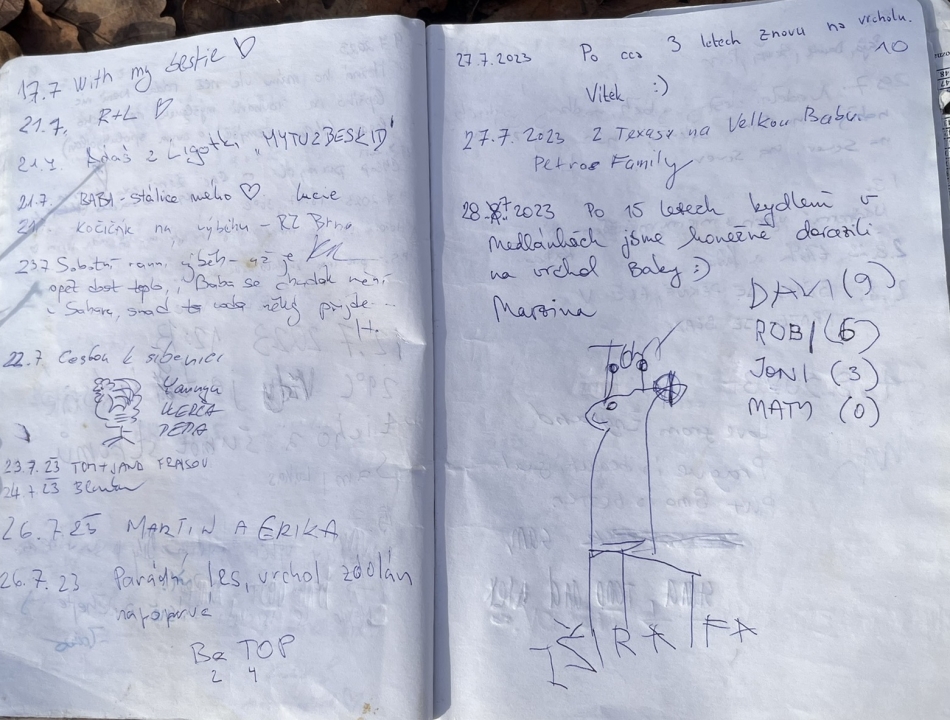 17.7 With my bestie ♡
21.7. R+L ♡
z Ligotki "MYTU2BESKID"
21.7. BABA - stálice mého ♡
kočičák na výběhu - RZ Brno
237 Sobotní ranní výběh - už je
opět dost teplo, Baba se chvilak mění
v Saharu, snad voda někdy přijde...
H.
22.7 Cestou k šibenici
DEDA
23.7.23
24.7.23
26.7.23 MARTIN A ERIKA
26.7.23 Parádní les, vrchol zdolán
napoprvé
Be TOP
2 4
10
27.7.2023 Po cca 3 letech znovu na vrcholu.
Vítek :)
27.7.2023 Z Texasu na Velkou Babu.
Petros Family
28.7.2023 Po 15 letech bydlení v
Medlánkách jsme konečně dorazili
na vrchol Baby :)
Marzina
DAVI (9)
ROBI (6)
JONI (3)
MATY (0)